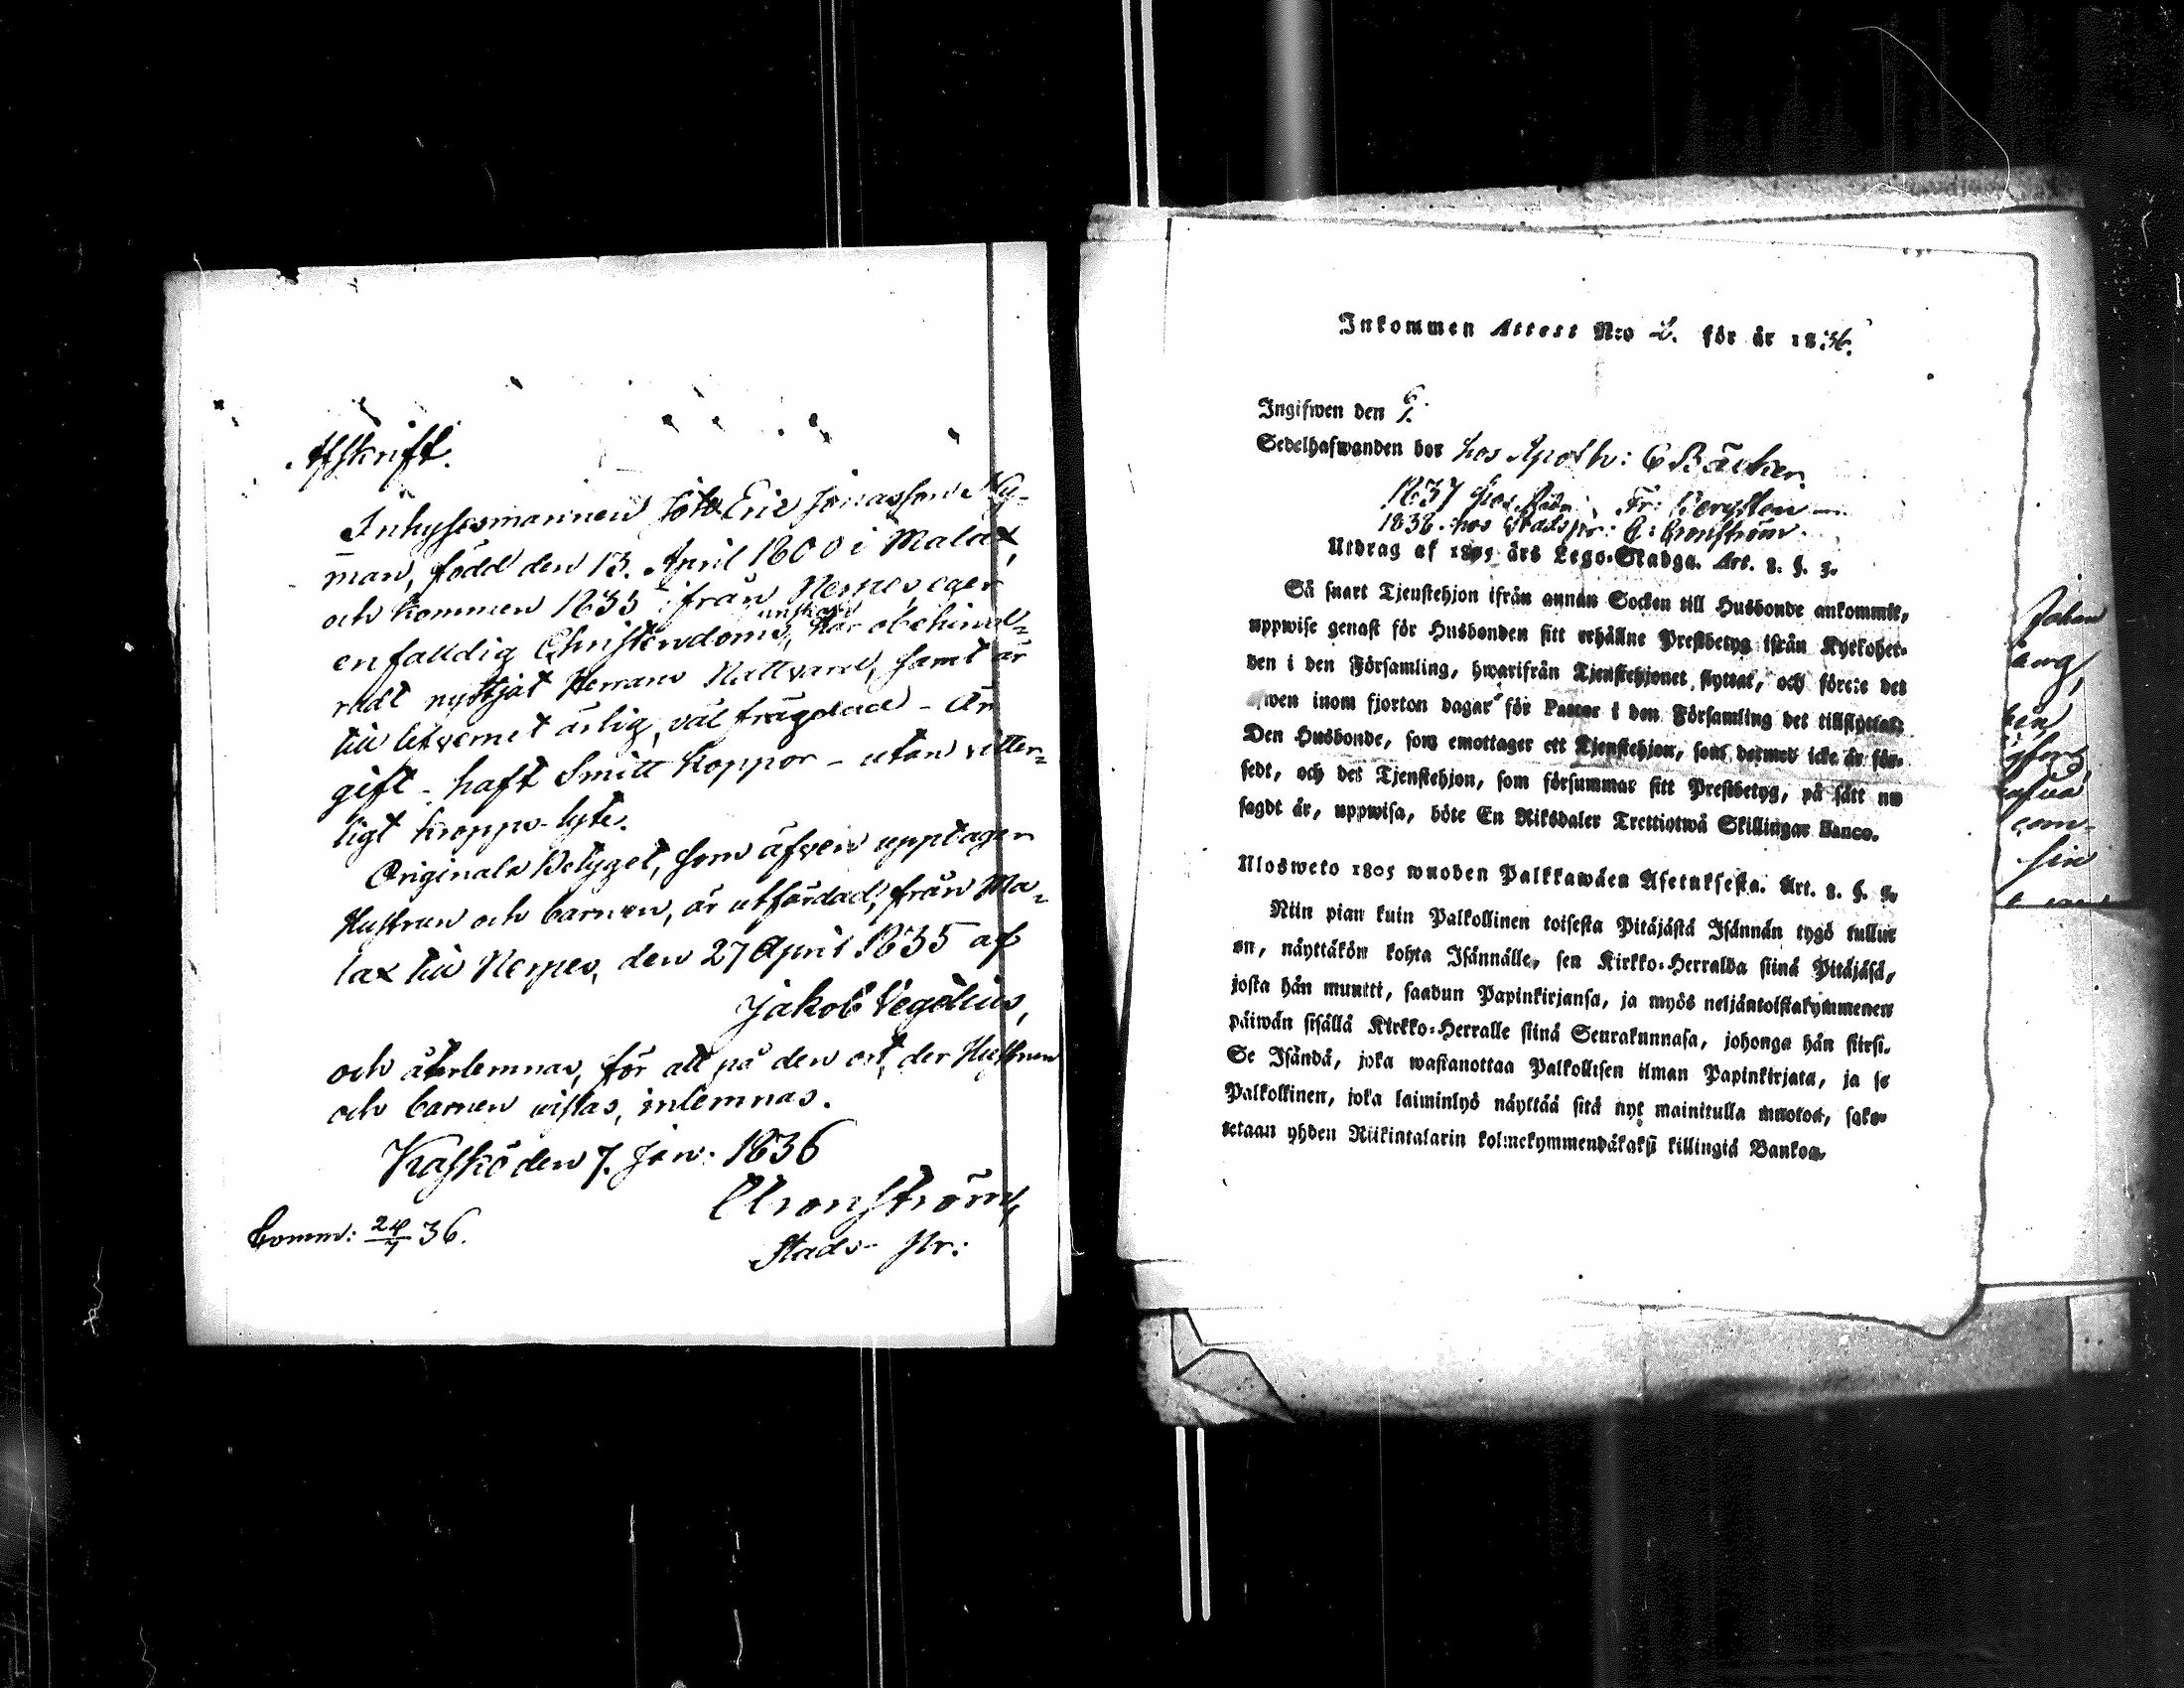 Afskrift.
Inhysesmannen Joh Eric Jonasson Ny-
man, född den 13. April 1800 i Malax,
och kommen 1835 ifrån Nerpes, eger
enfalldig Christendoms kunskap, har obehind-
radt nyttjat Herrans Nattvard, samt är
till lefvernet ärlig, väl frägdad - Är
gift - haft Smitt koppor - utan vitter-
ligt kropps-lyte.
Originala Betyget, som äfven upptager
Hustrun och barnen, är utfärdad, från Ma-
lax till Nerpes, den 27 April 1835 af
Jakob Vegelius,
och återlemnas, för att på den ort, der Hustrun
och barnen vistas, inlemnas.
Kaskö den 7. Jan: 1836
Cronström
Stads- Pr:
Comm: 24/4 36.
Inkommen Attest N:o 2. för år 1836.
Ingifwen den 6/1.
Sedelhafwanden bor hos Apoth: C Bäcker
1837 hos Fr: Bergsten
1838. hos Stadspr: C: Cronström
Utdrag af 1805 års Lego-Stadga. Art. 8. §. 3.
Så snart Tjenstehjon ifrån annan Socken till Husbonde ankommit,
uppwise genast för Husbonden sitt erhållne Prestbetyg ifrån Kyrkoher-
den i den Församling, hwarifrån Tjenstehjonet flyttat, och förete det
äfwen inom fjorton dagar för Pastor i den Församling det tillflyttat.
Den Husbonde, som emottager ett Tjenstehjon, som dermed icke är för-
sedt, och det Tjenstehjon, som försummar sitt Prestbetyg, på sätt nu
sagdt är, uppwisa, böte En Riksdaler Trettiotwå Skillingar Banco.
Ulosweto 1805 wuoden Palkkawäen Asetuksesta. Art. 8. §. 3.
Niin pian kuin Palkollinen toisesta Pitäjästä Isännän tygö tullut
on, näyttäkön kohta Isännälle, sen Kirkko-Herralda siinä Pitäjäsä,
josta hän muutti, saadun Papinkirjansa, ja myös neljäntoistakymmenen
päiwän sisällä Kirkko-Herralle siinä Seurakunnasa, johonga hän siirsi.
Se Isändä, joka wastanottaa Palkollisen ilman Papinkirjata, ja se
Palkollinen, joka laiminlyö näyttää sitä nyt mainitulla muotoa, sako-
tetaan yhden Riikintalarin kolmekymmendäkaksi killingiä Bankoa.
Johan